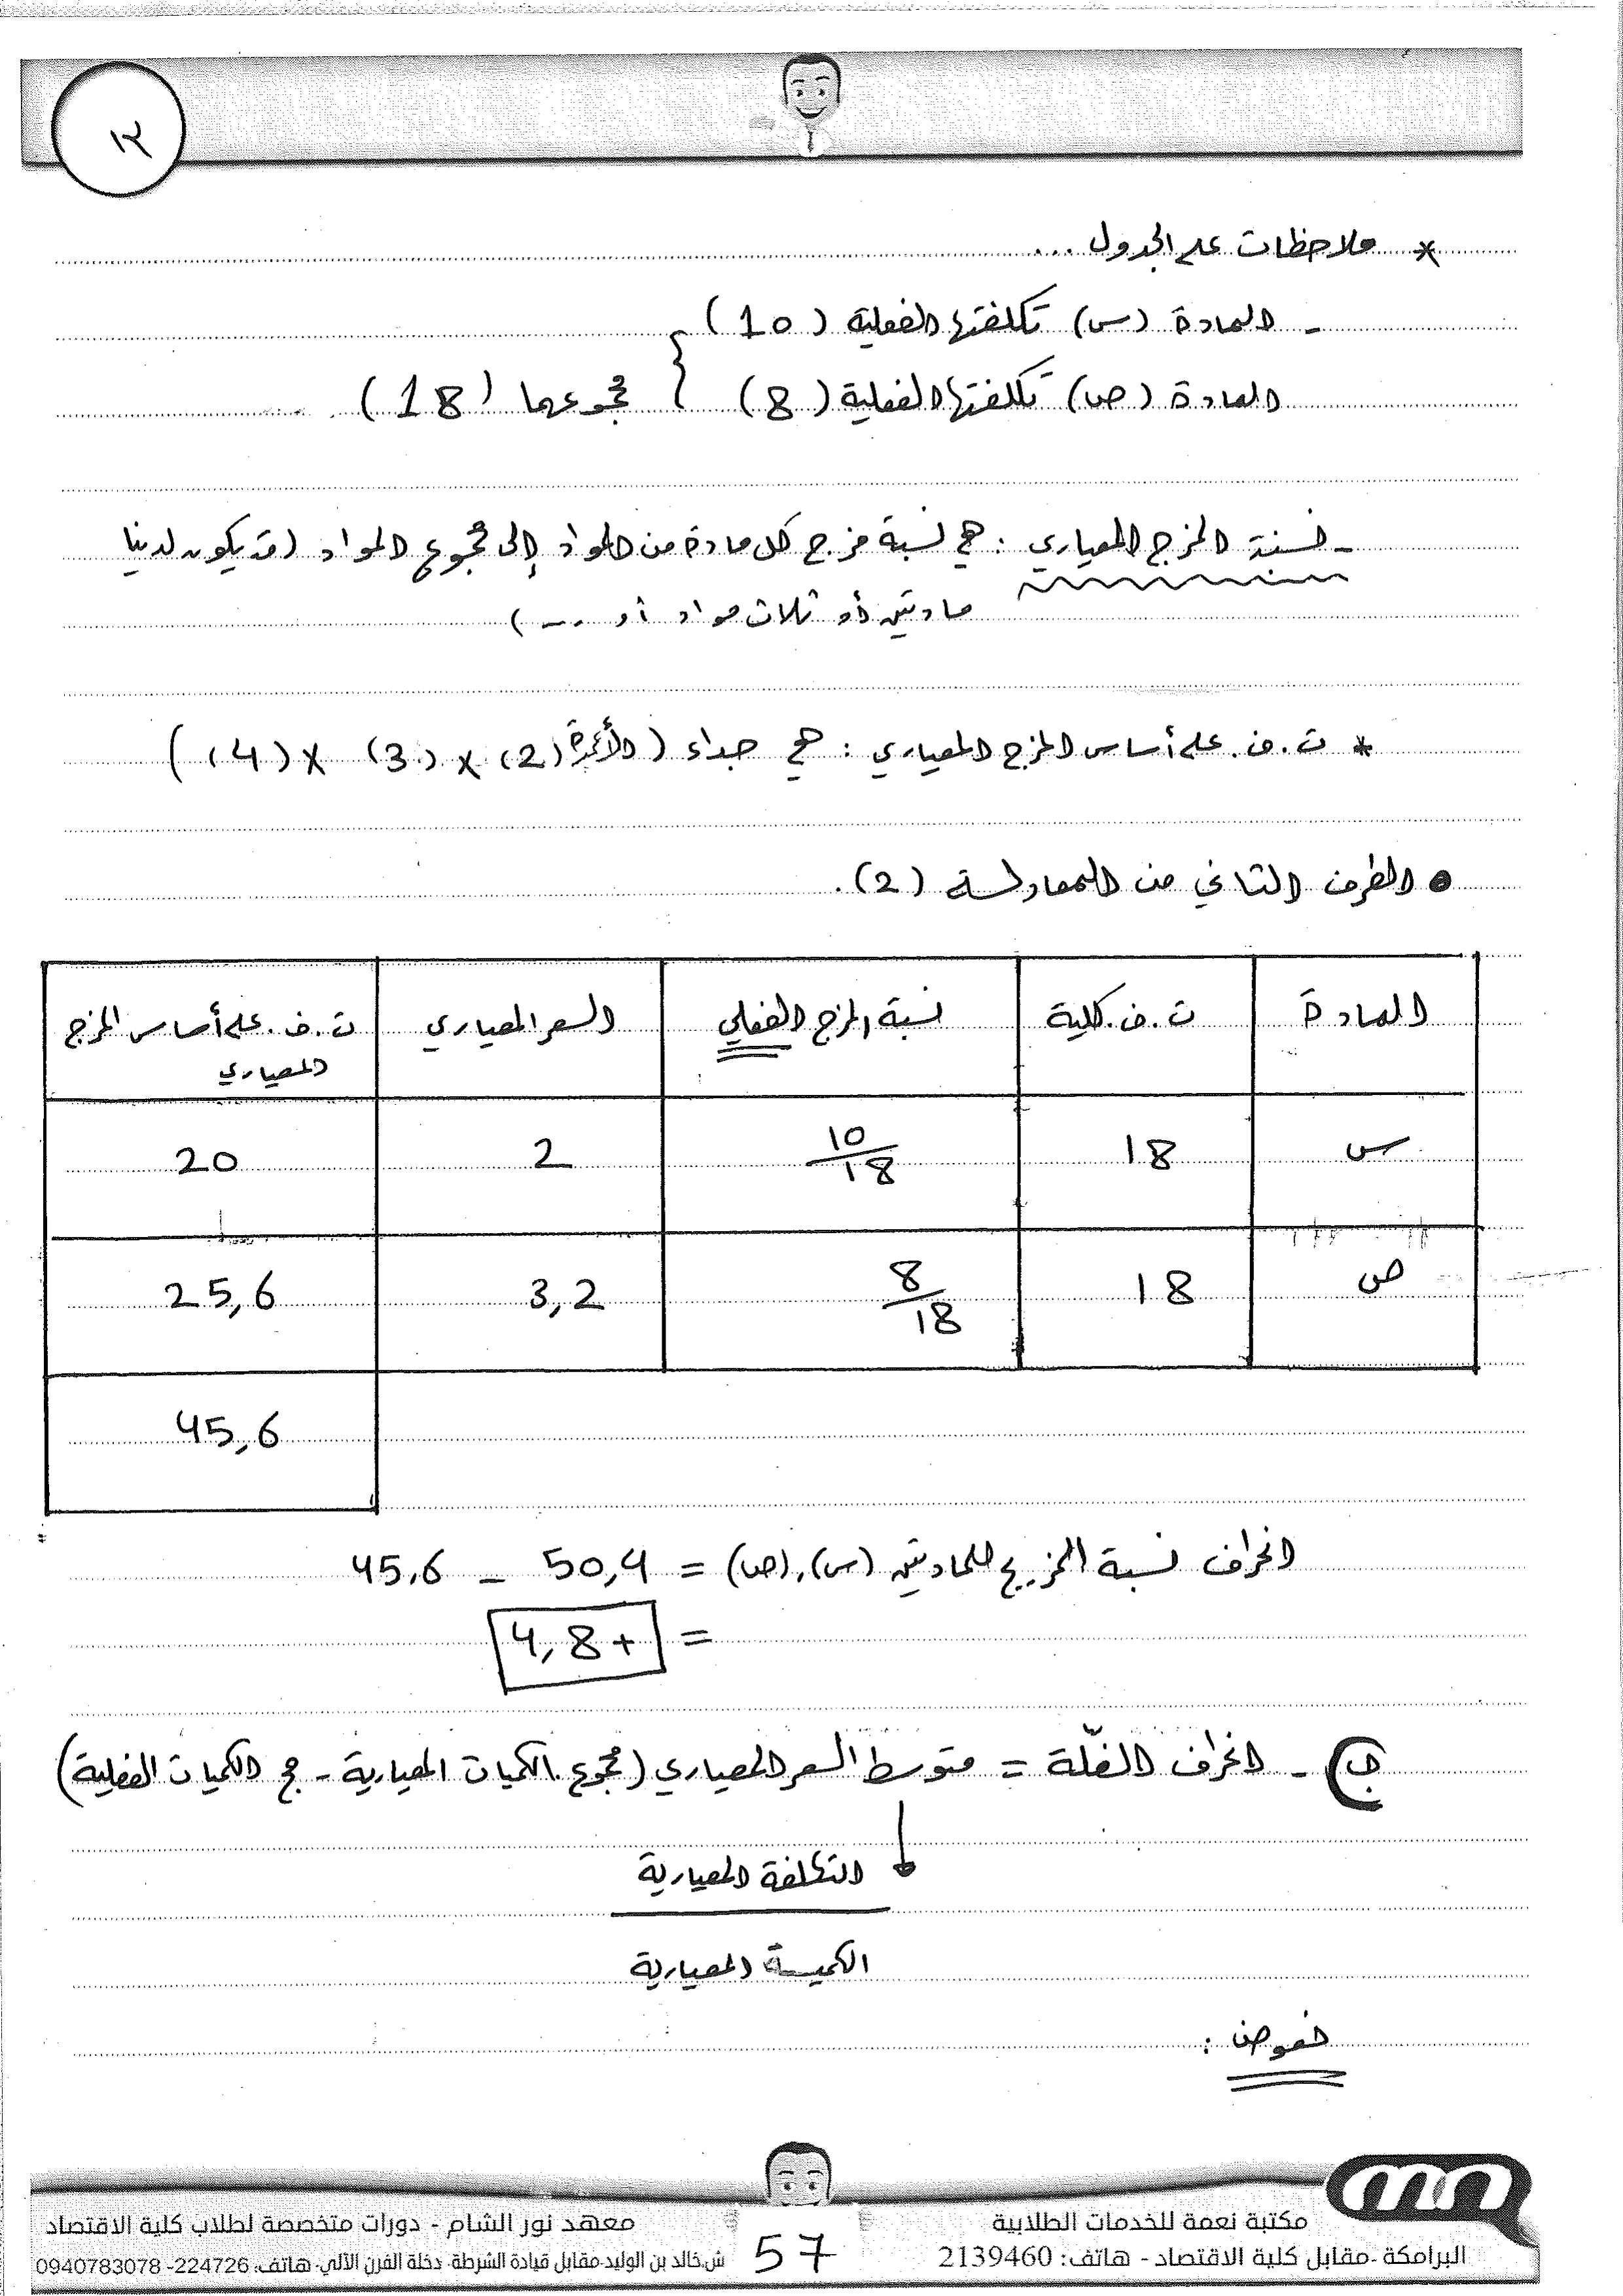 ١٢
* ملاحظات على الجدول ...
- المادة (س) تكلفتها الفعلية (10)
المادة (ص) تكلفتها الفعلية (8) } مجموعهما (18)
- نسبة المزج المعياري : هي نسبة مزج كل مادة من المواد إلى مجموع المواد (قد يكون لدينا
مادتين أو ثلاث مواد أو ...)
* ت.ف. على أساس المزج المعياري : هي جداء (الأعمدة (2) × (3) × (4))
● الطرف الثاني من المعادلة (2).
المادة ت.ف.كلية نسبة المزج الفعلي السعر المعياري ت.ف.على أساس المزج المعياري
س 18 10/18 2 20
ص 18 8/18 3,2 25,6
45,6
انحراف نسبة المزيج للمادتين (س)،(ص) = 50,4 - 45,6
= +4,8
ج) - انحراف الغلّة = متوسط السعر المعياري (مجموع الكميات المعيارية - مج الكميات الفعلية)
التكلفة المعيارية
الكمية المعيارية
نعوض :
مكتبة نعمة للخدمات الطلابية
البرامكة -مقابل كلية الاقتصاد - هاتف: 2139460
57
معهد نور الشام - دورات متخصصة لطلاب كلية الاقتصاد
ش.خالد بن الوليد-مقابل قيادة الشرطة- دخلة الفرن الآلي- هاتف: 224726- 0940783078